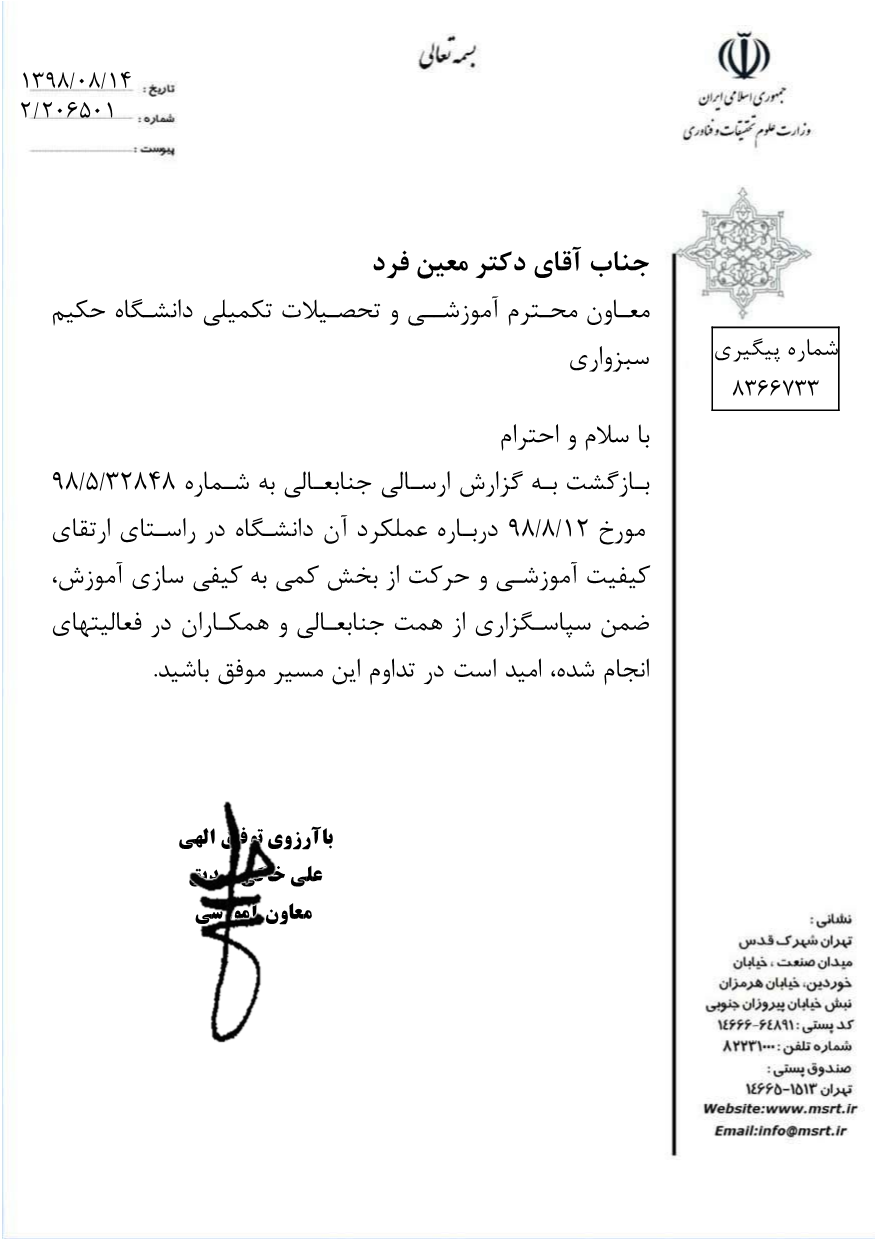 بسمه تعالی
جمهوری اسلامی ایران
وزارت علوم تحقیقات و فناوری
تاریخ : ۱۳۹۸/۰۸/۱۴
شماره : ۲/۲۰۶۵۰۱
پیوست :
شماره پیگیری
۸۳۶۶۷۳۳
جناب آقای دکتر معین فرد
معاون محترم آموزشی و تحصیلات تکمیلی دانشگاه حکیم
سبزواری
با سلام و احترام
بازگشت به گزارش ارسالی جنابعالی به شماره ۹۸/۵/۳۲۸۴۸
مورخ ۹۸/۸/۱۲ درباره عملکرد آن دانشگاه در راستای ارتقای
کیفیت آموزشی و حرکت از بخش کمی به کیفی سازی آموزش،
ضمن سپاسگزاری از همت جنابعالی و همکاران در فعالیتهای
انجام شده، امید است در تداوم این مسیر موفق باشید.
با آرزوی توفیق الهی
علی
معاون آموزشی
نشانی :
تهران شهرک قدس
میدان صنعت ، خیابان
خوردین، خیابان هرمزان
نبش خیابان پیروزان جنوبی
کد پستی : ۶۴۸۹۱-۱۴۶۶۶
شماره تلفن : ۸۲۲۳۱۰۰۰
صندوق پستی :
تهران ۱۵۱۳-۱۴۶۶۵
Website:www.msrt.ir
Email:info@msrt.ir